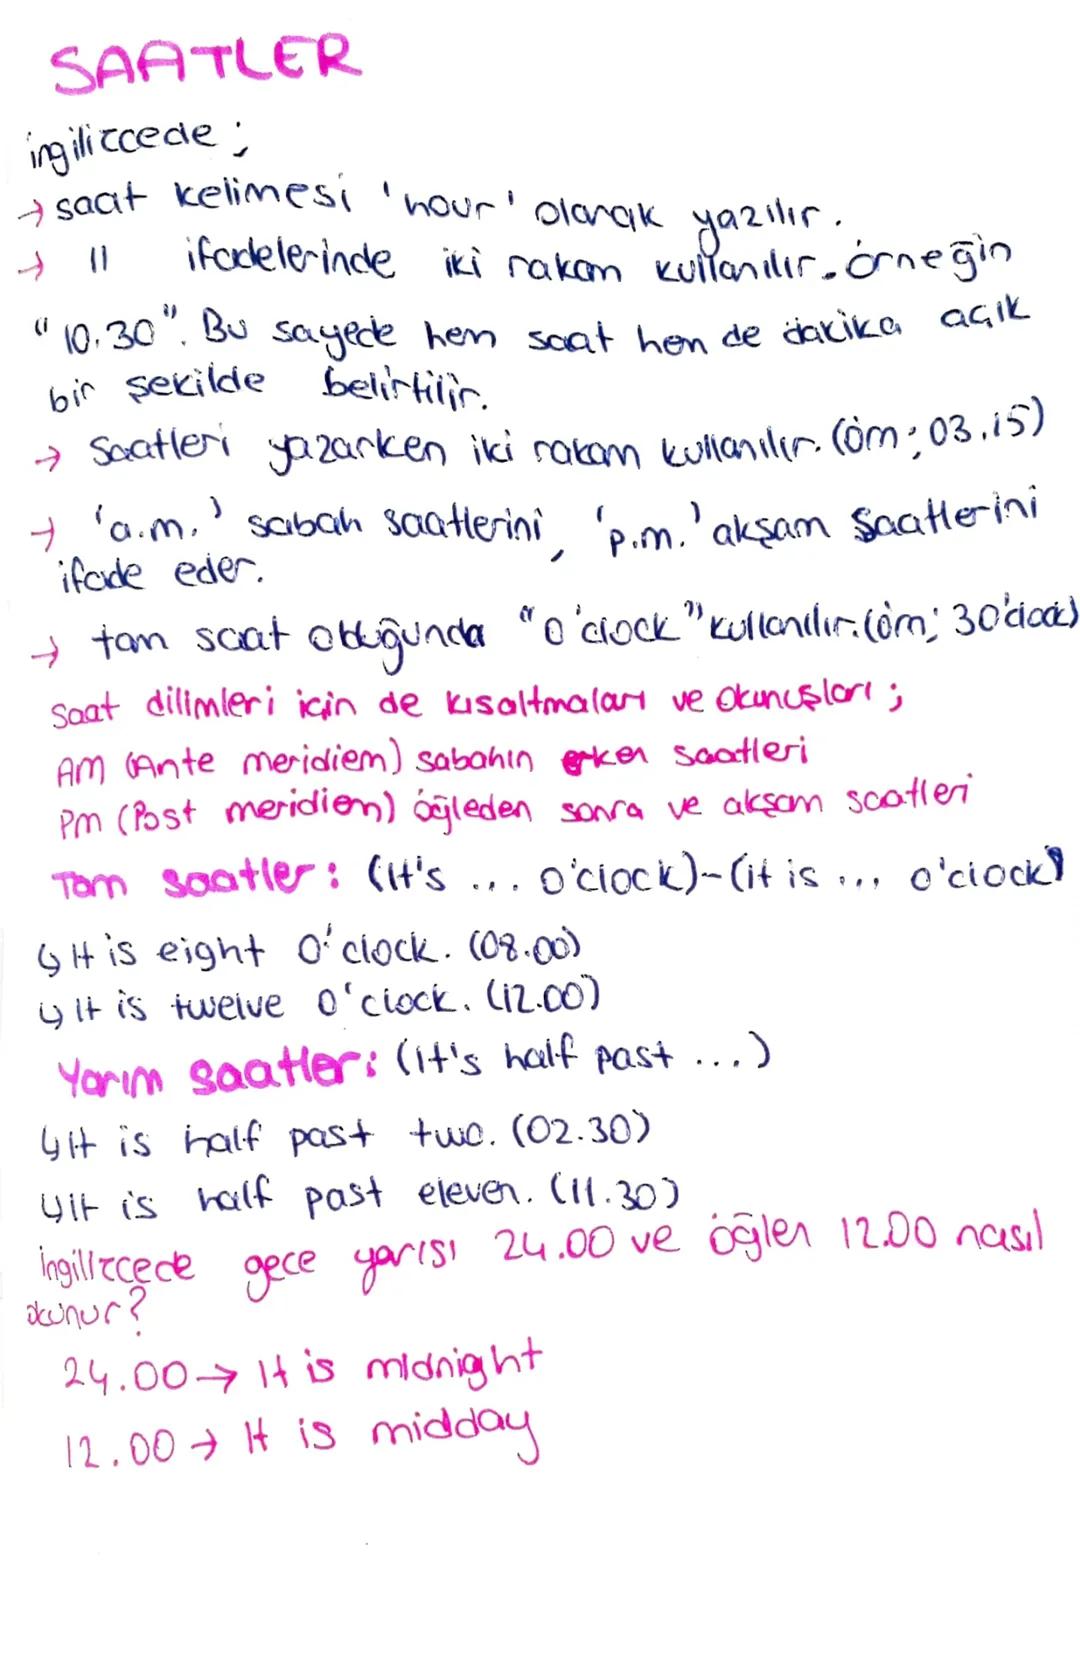 SAATLER
ingilizcede ;
→ saat kelimesi 'hour' olarak yazılır.
→ " ifadelerinde iki rakam kullanılır. örneğin
"10.30". Bu sayede hem saat hem de dakika açık
bir şekilde belirtilir.
→ Saatleri yazarken iki rakam kullanılır. (örn; 03.15)
→ 'a.m.' sabah saatlerini, 'p.m.' akşam saatlerini
ifade eder.
→ tam saat olduğunda "o'clock" kullanılır. (örn; 3 o'clock)
Saat dilimleri için de kısaltmaları ve okunuşları ;
AM (Ante meridiem) sabahın erken saatleri
Pm (Post meridiem) öğleden sonra ve akşam saatleri
Tam saatler: (It's ... o'clock)-(it is ... o'clock)
↳ It is eight o'clock. (08.00)
↳ It is twelve o'clock. (12.00)
Yarım saatler: (it's half past ...)
↳ It is half past two. (02.30)
↳ It is half past eleven. (11.30)
İngilizcede gece yarısı 24.00 ve öğlen 12.00 nasıl
okunur?
24.00 → It is midnight
12.00 → It is midday